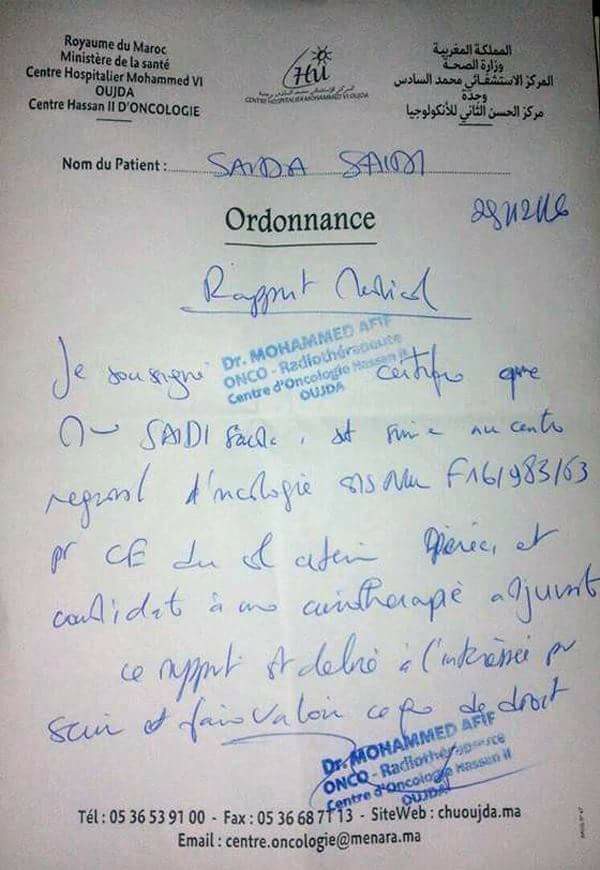 Royaume du Maroc
Ministère de la santé
Centre Hospitalier Mohammed VI
OUJDA
Centre Hassan II D'ONCOLOGIE
CHU
CENTRE HOSPITALIER MOHAMMED VI OUJDA
المملكة المغربية
وزارة الصحة
المركز الاستشفائي محمد السادس
وجدة
مركز الحسن الثاني للأنكولوجيا
Nom du Patient : SAIDA SAIDI
Ordonnance
Rapport Médical
Je soussigné
Dr. MOHAMMED AFIF
ONCO - Radiothérapeute
Centre d'Oncologie Hassan II
OUJDA
certifie que
SAIDI, est suivie au centre
regional d'oncologie F16/983/63
pr CE du et
candidat à une adjuvant
ce rapport est delivré à l'intéressée pr
servir et faire valoir ce que de droit
Dr. MOHAMMED AFIF
ONCO - Radiothérapeute
Centre d'Oncologie Hassan II
OUJDA
Tél : 05 36 53 91 00 - Fax : 05 36 68 71 13 - SiteWeb : chuoujda.ma
Email : centre.oncologie@menara.ma